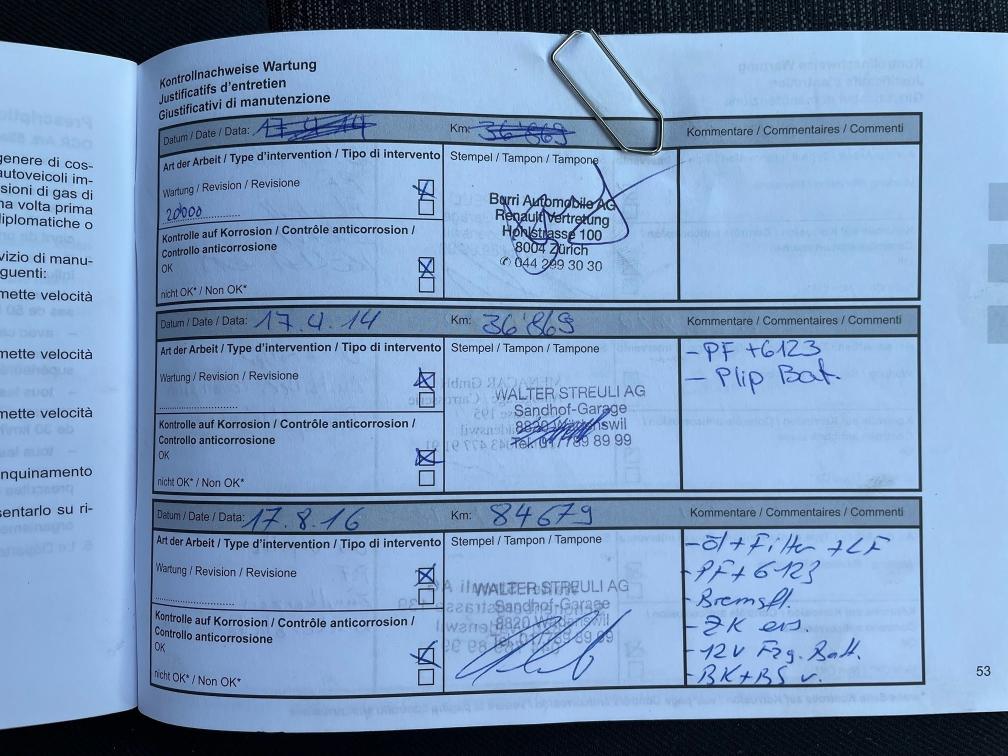 genere di cos-
autoveicoli im-
sioni di gas di
na volta prima
liplomatiche o
vizio di manu-
guenti:
mette velocità
mette velocità
mette velocità
nquinamento
sentarlo su ri-
Kontrollnachweise Wartung
Justificatifs d'entretien
Giustificativi di manutenzione
Datum / Date / Data: 17.4.14 Km: 36'869 Kommentare / Commentaires / Commenti
Art der Arbeit / Type d'intervention / Tipo di intervento
Stempel / Tampon / Tampone
Wartung / Revision / Revisione
20000
Burri Automobile AG
Renault Vertretung
Hohlstrasse 100
8004 Zürich
✆ 044 299 30 30
Kontrolle auf Korrosion / Contrôle anticorrosion /
Controllo anticorrosione
OK
nicht OK* / Non OK*
Datum / Date / Data: 17.4.14 Km: 36'869 Kommentare / Commentaires / Commenti
Art der Arbeit / Type d'intervention / Tipo di intervento
Stempel / Tampon / Tampone
- PF +6123
- Plip Bat.
Wartung / Revision / Revisione
WALTER STREULI AG
Sandhof-Garage
8820 Wädenswil
Tel. 01 / 789 89 99
Kontrolle auf Korrosion / Contrôle anticorrosion /
Controllo anticorrosione
OK
nicht OK* / Non OK*
Datum / Date / Data: 17.8.16 Km: 84679 Kommentare / Commentaires / Commenti
Art der Arbeit / Type d'intervention / Tipo di intervento
Stempel / Tampon / Tampone
- öl + Filter + LF
- PF + 6123
- Bremsfl.
- ZK ers.
- 12V Fzg. Batt.
- BK + BS v.
Wartung / Revision / Revisione
WALTER STREULI AG
Sandhof-Garage
8820 Wädenswil
Tel. 01 / 789 89 99
Kontrolle auf Korrosion / Contrôle anticorrosion /
Controllo anticorrosione
OK
nicht OK* / Non OK*
53